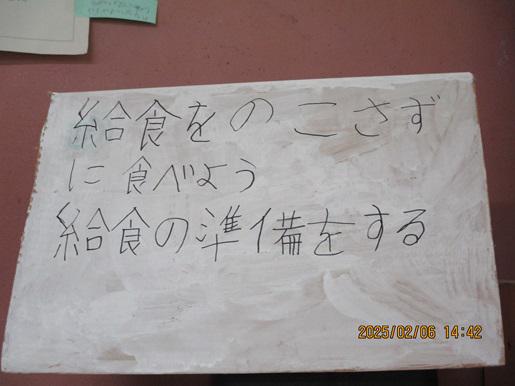 給食をのこさず
に食べよう
給食の準備をする
2025/02/06 14:42